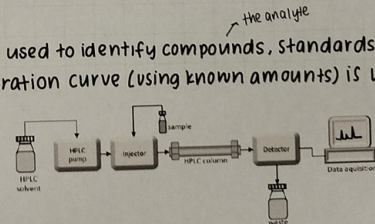 the analyte
used to identify compounds, standards
ration curve (using known amounts) is
sample
HPLC pump
Injector
HPLC column
Detector
HPLC solvent
Data aquisition
waste